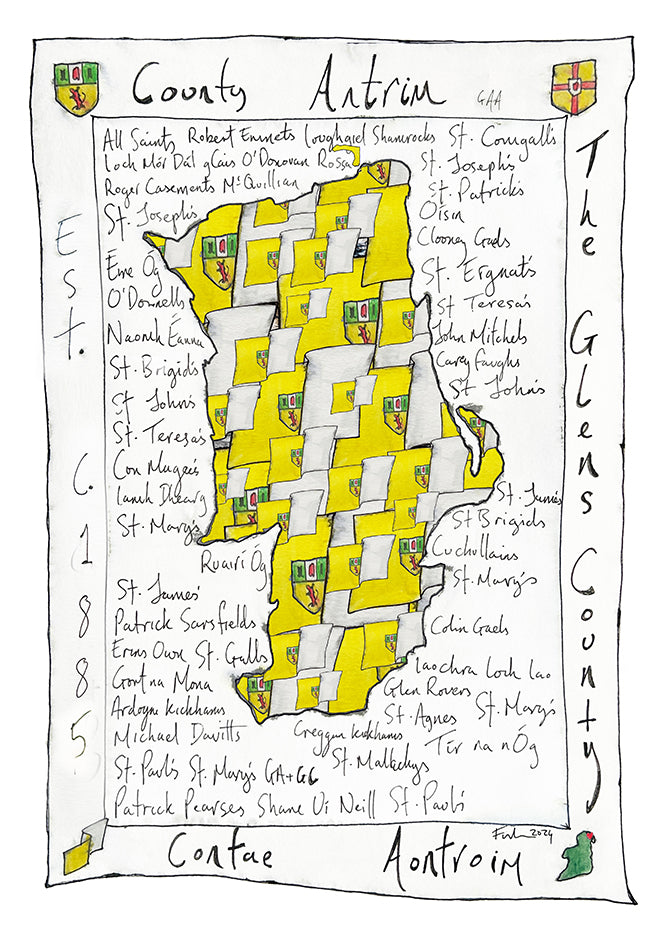 County Antrim GAA
All Saints Robert Emmets Loughgiel Shamrocks St. Comgalls
Loch Mór Dál gCais O'Donovan Rossa
St. Joseph's
Roger Casements McQuillian
St. Patrick's
St. Joseph's
Oisin
Clooney Gaels
Eire Óg
St. Ergnat's
O'Donnells
St Teresa's
Naomh Éanna
John Mitchels
Carey Faughs
St. Brigid's
St John's
St John's
St. Teresas
Con Magees
Lamh Dhearg
St. James
St. Mary's
St Brigids
Cuchullains
Ruairí Óg
St. Mary's
St. James'
Patrick Sarsfields
Colin Gaels
Erins Own St. Galls
Laochra Loch Lao
Gort na Mona
Glen Rovers
Ardoyne Kickhams
St. Agnes St. Mary's
Michael Davitts
Creggan Kickhams
Tír na nÓg
St. Paul's St. Mary's GA+GC
St. Malachys
Patrick Pearses Shane Uí Neill St. Paul's
2024
Est. C. 1885
The Glens County
Contae Aontroim